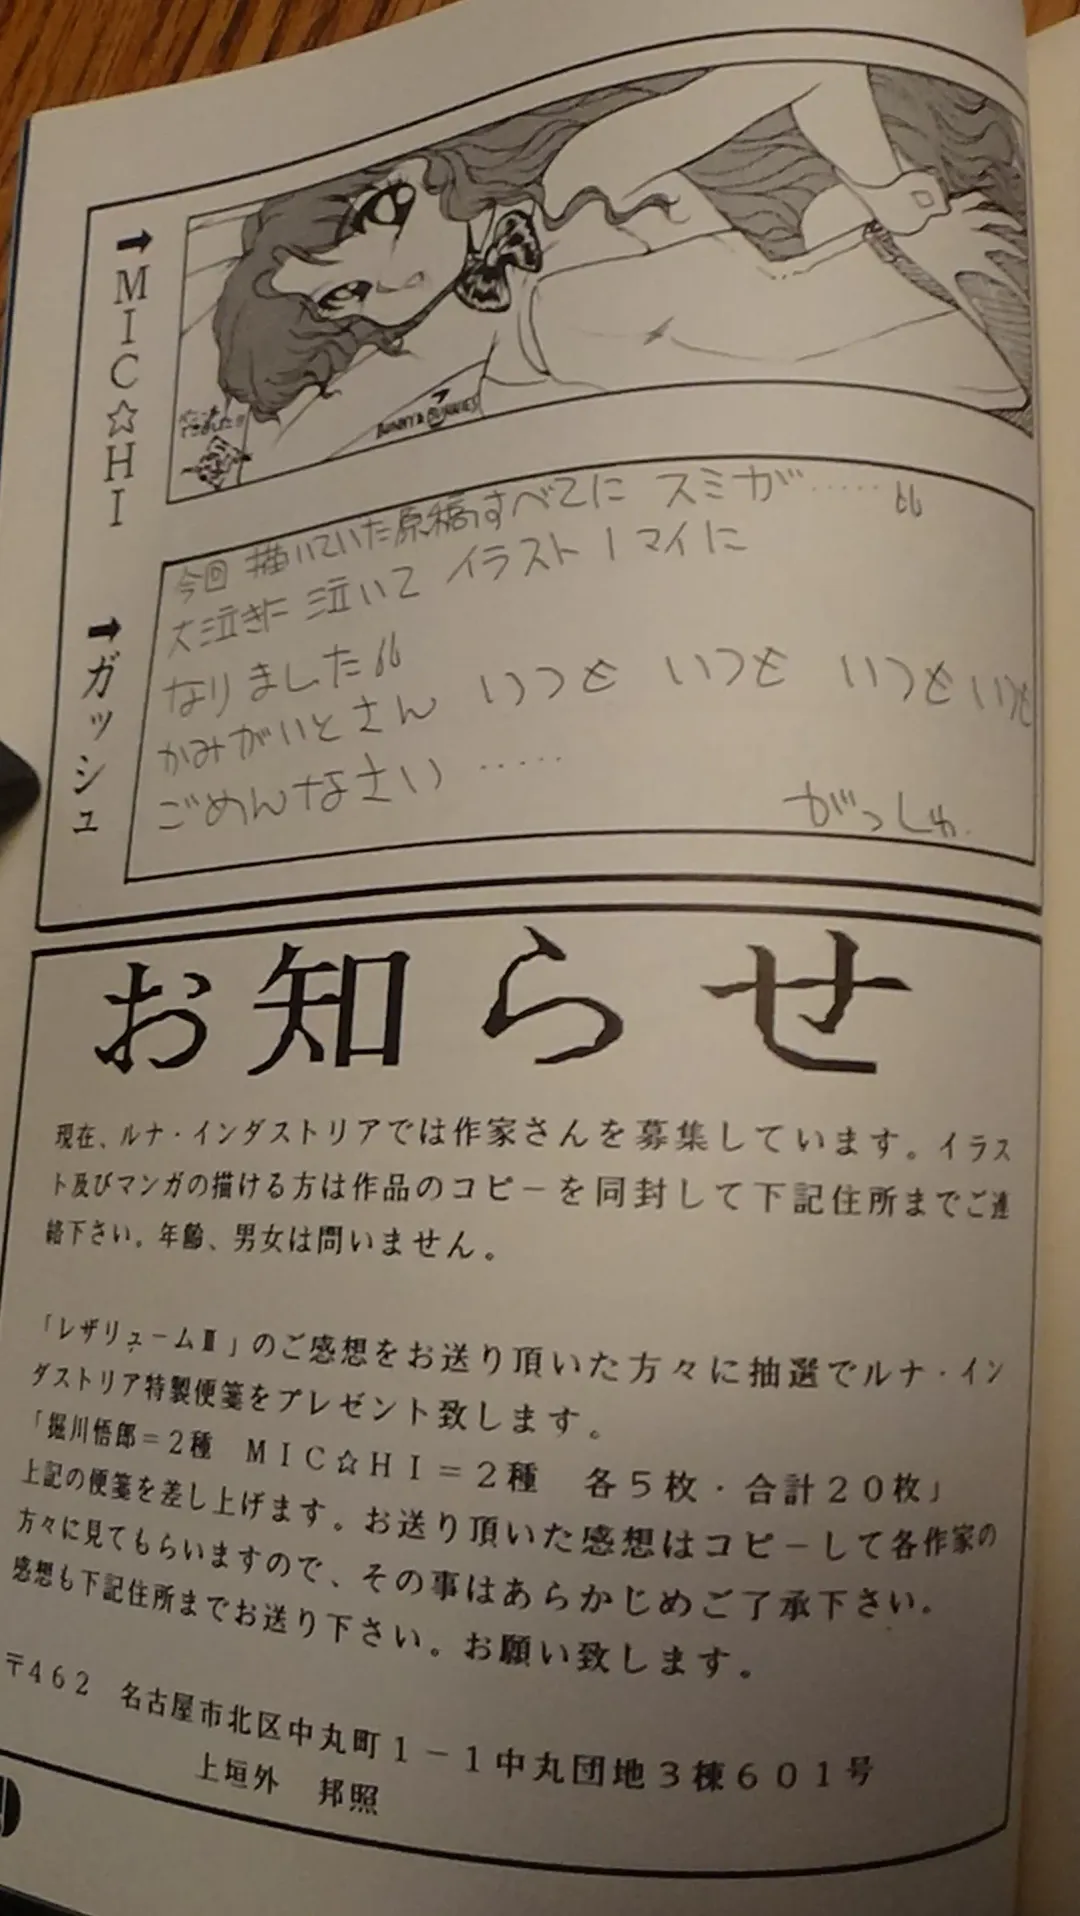 ➡MIC☆HI
BUNNY & BUNNIES
➡ガッシュ
今回 描いていた原稿すべてに スミが……
大泣きに 泣いて イラスト1マイに
なりました
かみがいとさん いつも いつも いつも いつも
ごめんなさい……
がっしゅ.
お知らせ
現在、ルナ・インダストリアでは作家さんを募集しています。イラス
ト及びマンガの描ける方は作品のコピーを同封して下記住所までご連
絡下さい。年齢、男女は問いません。
「レザリュームⅢ」のご感想をお送り頂いた方々に抽選でルナ・イン
ダストリア特製便箋をプレゼント致します。
「堀川悟郎=2種 MIC☆HI=2種 各5枚・合計20枚」
上記の便箋を差し上げます。お送り頂いた感想はコピーして各作家の
方々に見てもらいますので、その事はあらかじめご了承下さい。
感想も下記住所までお送り下さい。お願い致します。
〒462 名古屋市北区中丸町1-1中丸団地3棟601号
上垣外 邦照